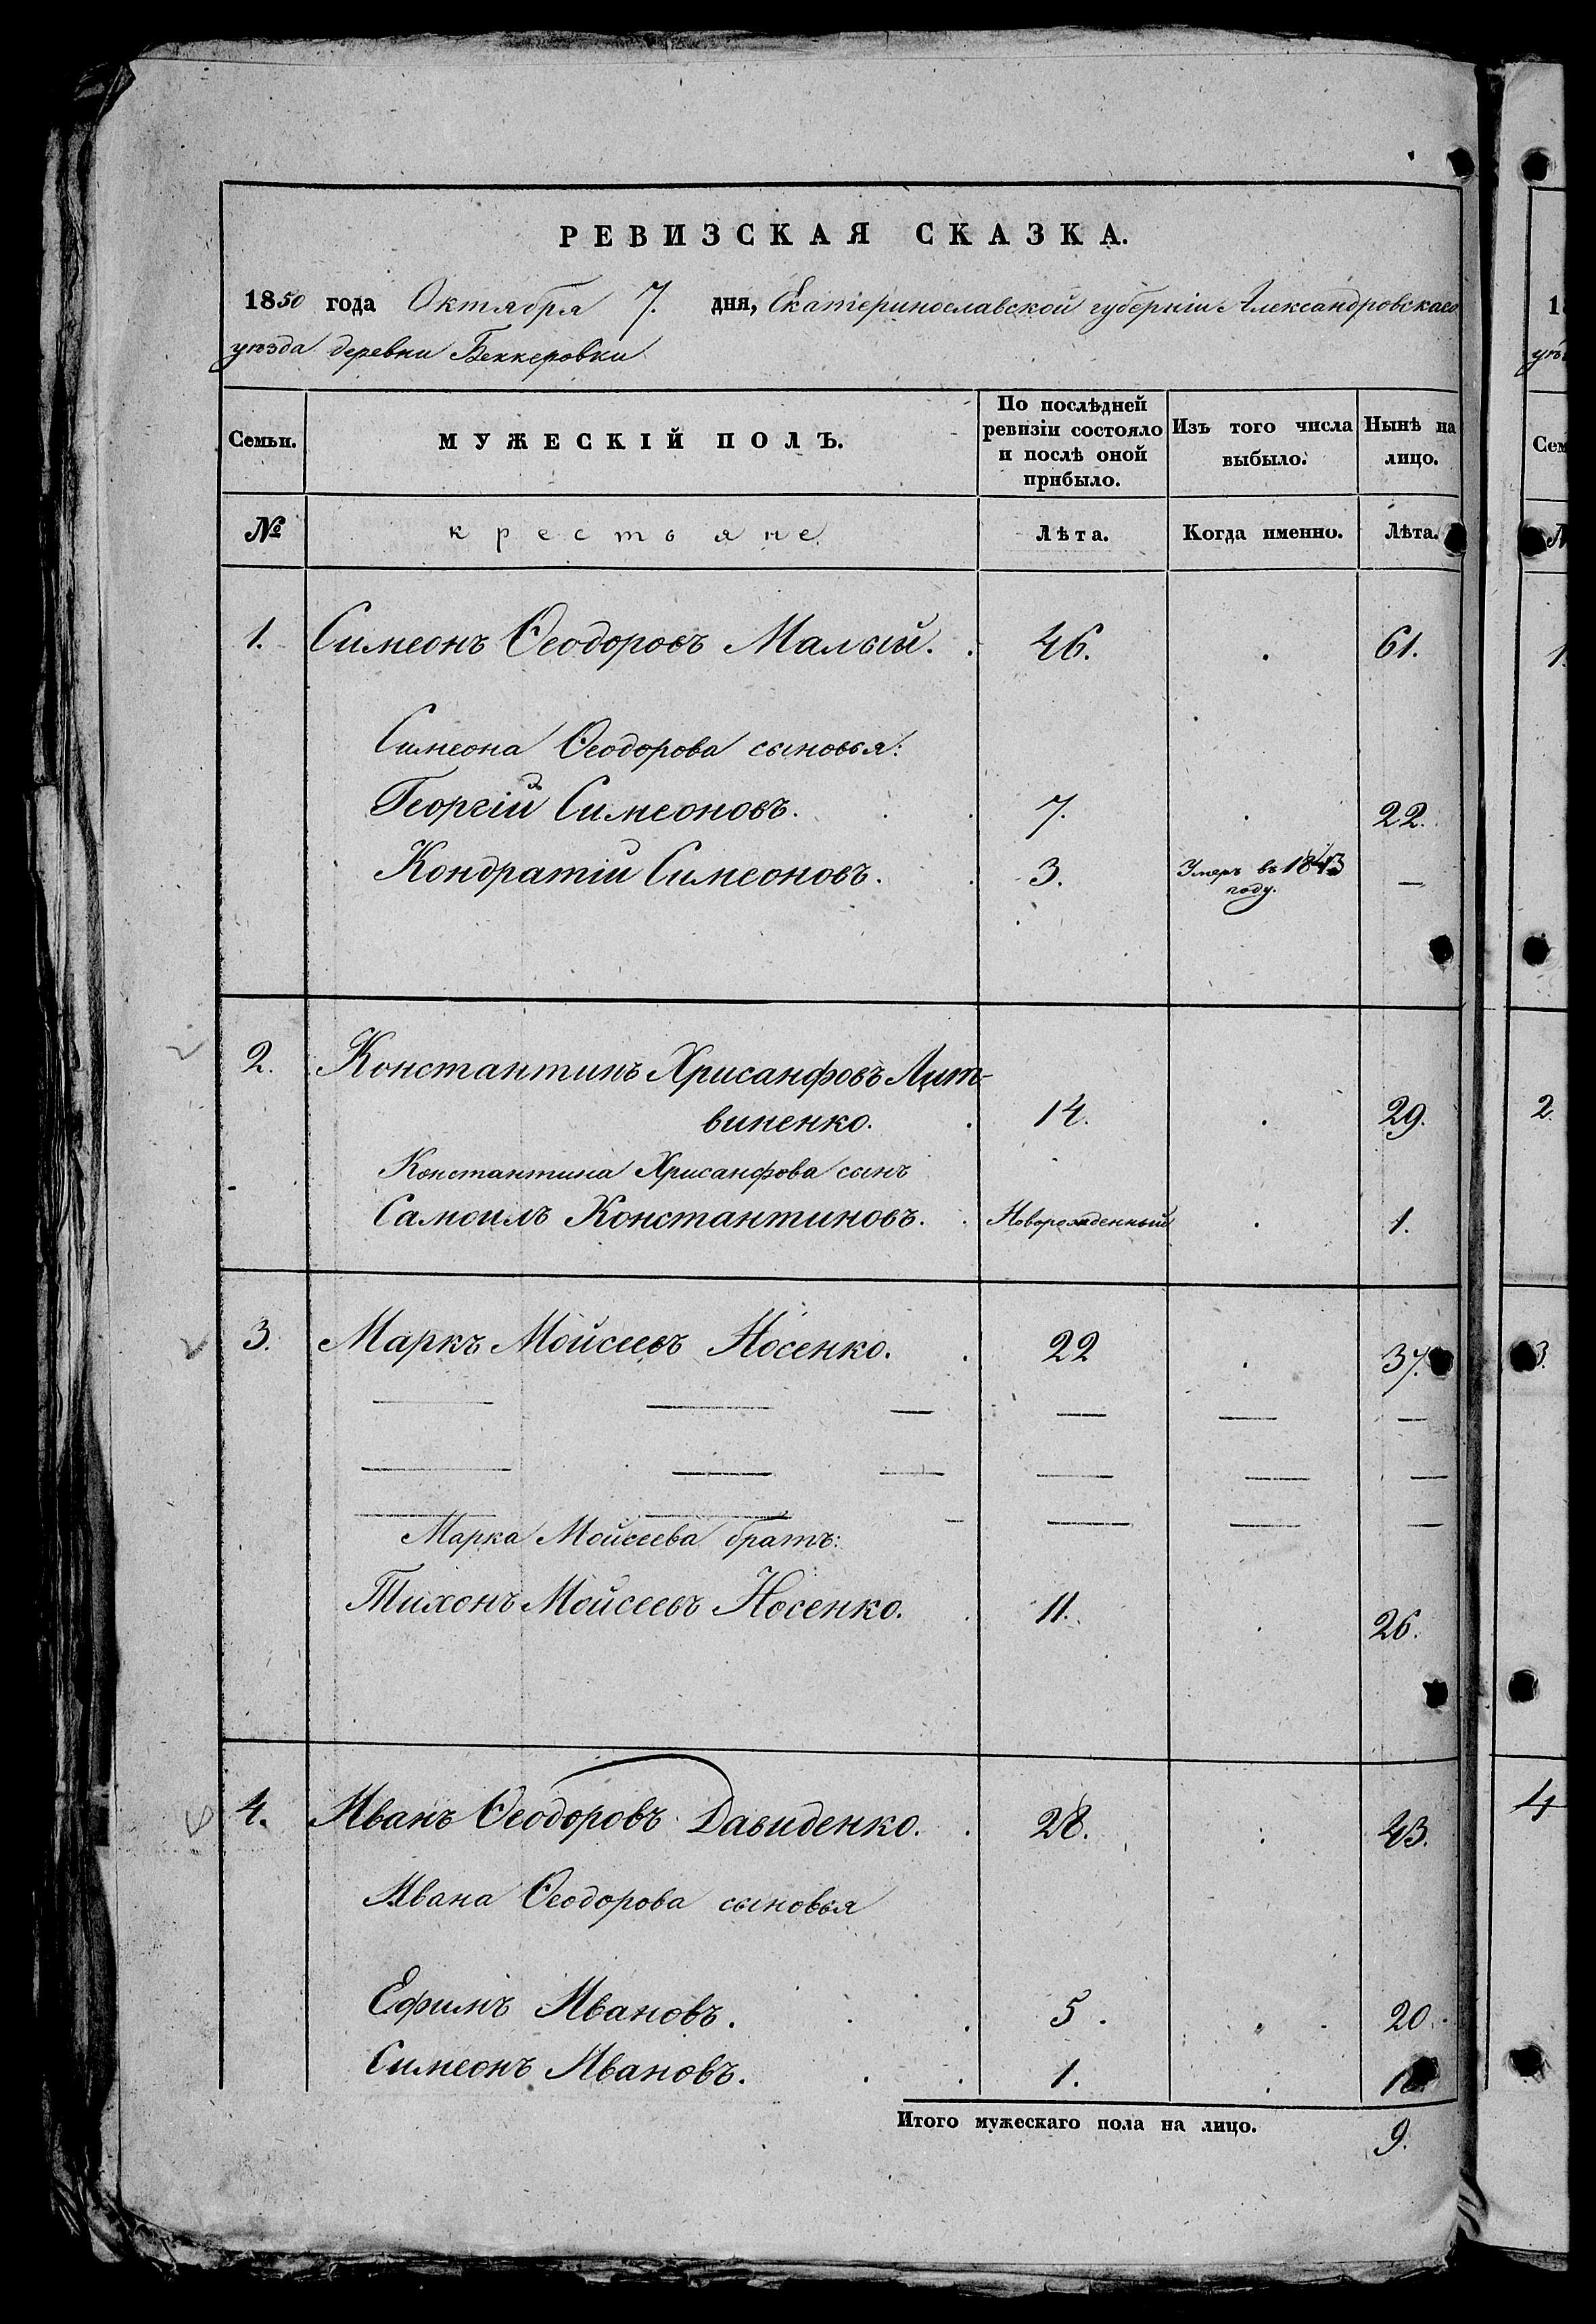 РЕВИЗСКАЯ СКАЗКА.
1850 года Октября 7. дня, Екатеринославской губерніи Александровскаго
уѣзда деревни Беккеровки
Семьи. МУЖЕСКІЙ ПОЛЪ. По послѣдней ревизіи состояло и послѣ оной прибыло. Изъ того числа выбыло. Нынѣ на лицо.
№ крестьяне. Лѣта. Когда именно. Лѣта.
1. Симеонъ Ѳеодоровъ Малый. 46. 61.
Симеона Ѳеодорова сыновья:
Георгій Симеоновъ. 7. 22.
Кондратій Симеоновъ. 3. Умеръ въ 1843 году. —
2. Константинъ Хрисанфовъ Лит-
виненко. 14. 29.
Константина Хрисанфова сынъ
Самоилъ Константиновъ. Новорожденный 1.
3. Маркъ Мойсеевъ Носенко. 22 37.
— — — — — —
— — — — — —
— — — — — —
Марка Мойсеева братъ:
Тихонъ Мойсеевъ Носенко. 11. 26.
4. Иванъ Ѳеодоровъ Давиденко. 28. 43.
Ивана Ѳеодорова сыновья
Ефимъ Ивановъ. 5. 20.
Симеонъ Ивановъ. 1.
Итого мужескаго пола на лицо. 9.
1.
2.
3.
4